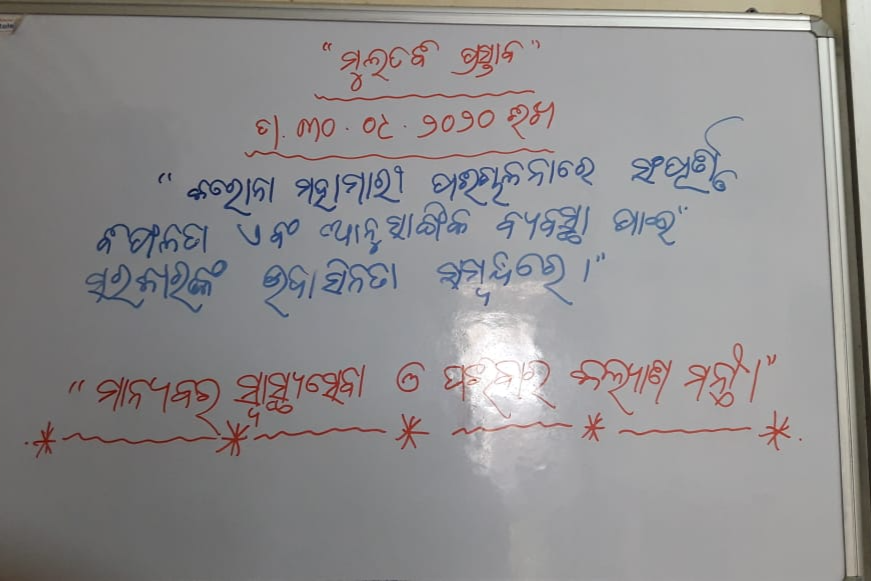 “ମୁଲତବୀ ପ୍ରସ୍ତାବ”
ତା. ୩୦.୦୯.୨୦୨୦ ରିଖ
“କରୋନା ମହାମାରୀ ପରିଚାଳନାରେ ସଂପୂର୍ଣ୍ଣ
ବିଫଳତା ଏବଂ ଆନୁସାଙ୍ଗିକ ବ୍ୟବସ୍ଥା ପାଇଁ”
ସରକାରଙ୍କ ଉଦାସିନତା ସମ୍ବନ୍ଧରେ।”
“ମାନ୍ୟବର ସ୍ୱାସ୍ଥ୍ୟସେବା ଓ ପରିବାର କଲ୍ୟାଣ ମନ୍ତ୍ରୀ।”